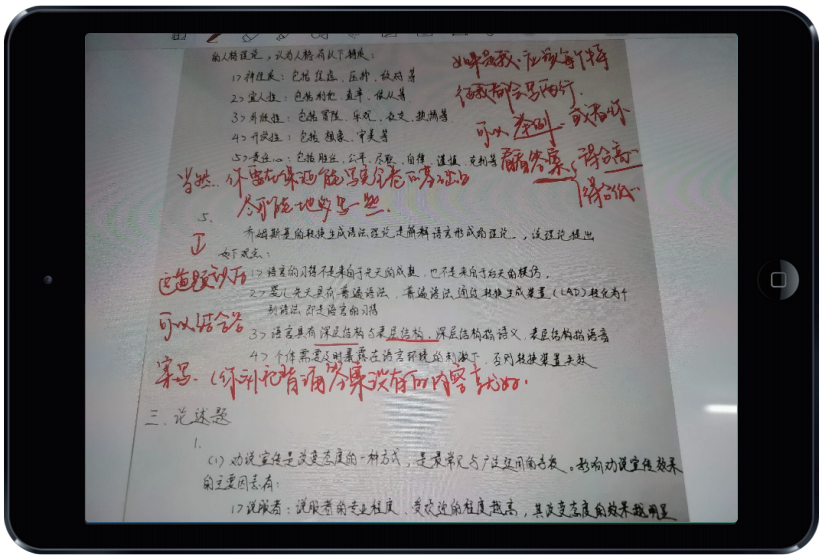 的人格理论，认为人格有以下特质：
1> 神经质：包括焦虑、压抑、敌对等
2> 宜人性：包括利他、直率、依从等
3> 外倾性：包括冒险、乐观、社交、热情等
4> 开放性：包括想象、审美等
5> 责任心：包括胜任、公平、尽职、自律、谨慎、克制等
如果是我，应该每个特
征我都会写两行.
可以举例 或者你
看看答案
得分高
得分低
当然，你要在保证能写完全卷的基础上
尽可能地多写一点.
5.
乔姆斯基的转换生成语法理论是解释语言形成的理论，该理论提出
如下观点：
1> 语言的习得不是来自于先天的成熟，也不是来自于后天的模仿。
2> 婴儿先天具有普遍语法，普遍语法通过转换生成装置（LAD）转化为个
别语法 即是语言的习得
3> 语言具有深层结构与表层结构，深层结构指语义，表层结构指语音
4> 个体需要及时暴露在语言环境的刺激下，否则转换装置失效
这道题
可以结合答
案写. （你补充背诵答案没有的内容就好.
三. 论述题
1.
（1）劝说宣传是改变态度的一种方式，是最常见与广泛运用的手段。影响劝说宣传效果
的主要因素有：
1> 说服者：说服者的专业程度、受欢迎的程度越高，其改变态度的效果越明显